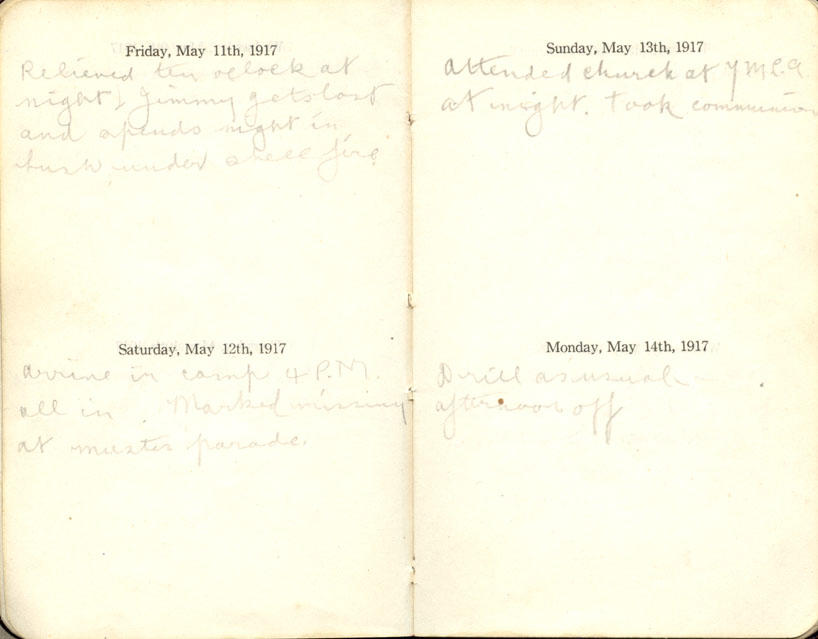 Friday, May 11th, 1917
Relieved ten oclock at
night. Jimmy gets lost
and spends night in
bush under shell fire
Saturday, May 12th, 1917
arrive in camp 4 P.M.
all in. Marked missing
at muster parade.
Sunday, May 13th, 1917
Attended church at YMCA
at night. Took communion
Monday, May 14th, 1917
Drill as usual
afternoon off